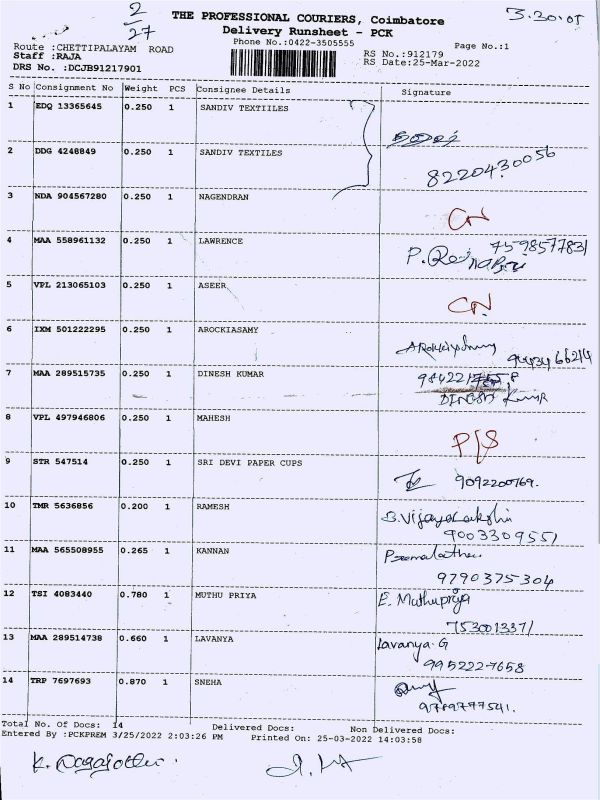 2
27
THE PROFESSIONAL COURIERS, Coimbatore
3.30.05
Delivery Runsheet - PCK
Phone No.:0422-3505555
Page No.:1
Route :CHETTIPALAYAM ROAD
Staff :RAJA
RS No.:912179
DRS No. :DCJB91217901
RS Date:25-Mar-2022
S No Consignment No Weight PCS Consignee Details Signature
1 EDQ 13365645 0.250 1 SANDIV TEXTIILES
2 DDG 4248849 0.250 1 SANDIV TEXTIILES
8220430056
3 NDA 904567280 0.250 1 NAGENDRAN
CN
4 MAA 558961132 0.250 1 LAWRENCE
7598577831
P.
5 VPL 213065103 0.250 1 ASEER
CN
6 IXM 501222295 0.250 1 AROCKIASAMY
Arockiyasamy
7 MAA 289515735 0.250 1 DINESH KUMAR
DINESH Kumar
8 VPL 497946806 0.250 1 MAHESH
P/S
9 STR 547514 0.250 1 SRI DEVI PAPER CUPS
9092200769.
10 TMR 5636856 0.200 1 RAMESH
S.Vijayalakshmi
9003309551
11 MAA 565508955 0.265 1 KANNAN
9790375304
12 TSI 4083440 0.780 1 MUTHU PRIYA
E. Muthupriya
7530013371
13 MAA 289514738 0.660 1 LAVANYA
Lavanya. G
995222-7658
14 TRP 7697693 0.870 1 SNEHA
9789777541.
Total No. Of Docs: 14 Delivered Docs: Non Delivered Docs:
Entered By :PCKPREM 3/25/2022 2:03:26 PM Printed On: 25-03-2022 14:03:58